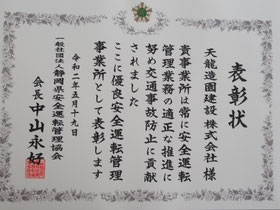 表彰状
天龍造園建設株式会社様
貴事業所は常に安全運転
管理業務の適正な推進に
努め交通事故防止に貢献
されました
ここに優良安全運転管理
事業所として表彰します
令和二年五月十九日
一般社団法人静岡県安全運転管理協会
会長中山永好